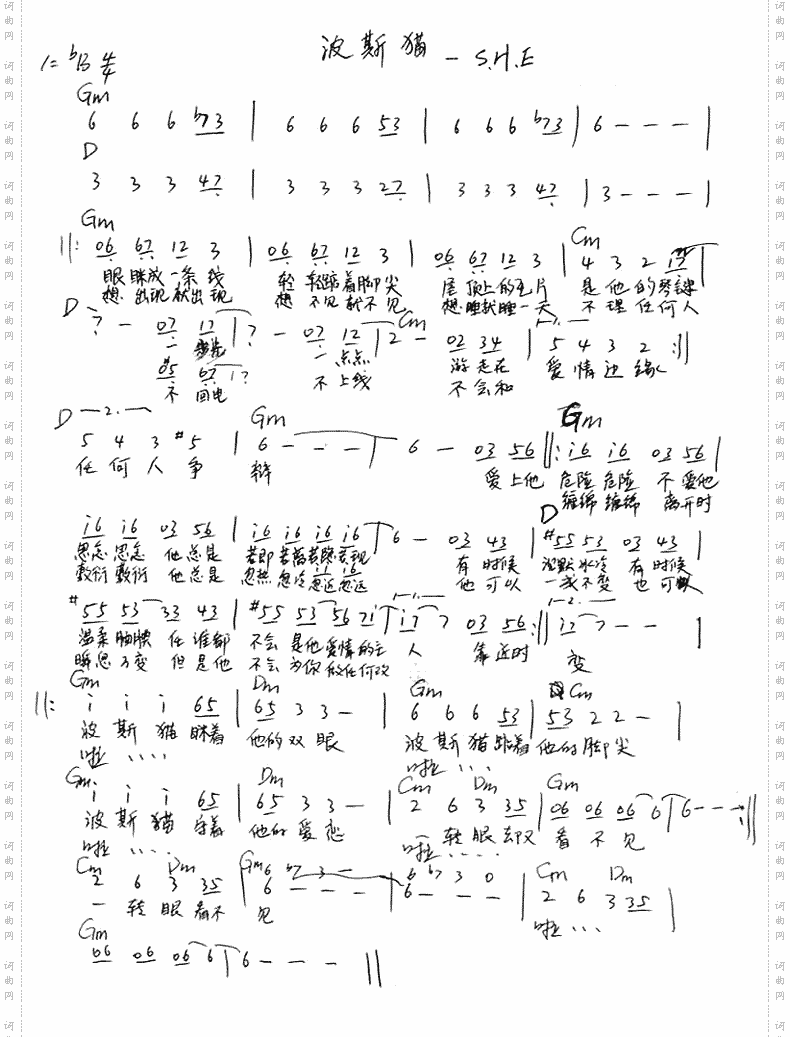 波斯猫 - S.H.E
1=ᵇB 4/4
Gm
6 6 6 ᵇ73 | 6 6 6 53 | 6 6 6 ᵇ73 | 6 - - - |
D
3 3 3 47 | 3 3 3 27 | 3 3 3 47 | 3 - - - |
Gm Cm
||: 06 67 12 3 | 06 67 12 3 | 06 67 12 3 | 4 3 2 17 |
眼眯成一条线 轻轻踮着脚尖 尾顶上的毛片 是他的琴键
想出现就出现 想不见就不见 想睡就睡一天 不理任何人
D Cm 1.
? - 07 17 | ? - 07 12 | 2 - 02 34 | 5 4 3 2 :||
一 一点点 游走在 爱情边缘
#05 67 1?
不回电 不上线 不会和
D 2. Gm Gm
5 4 3 #5 | 6 - - - | 6 - 03 56 ||: i6 i6 03 56 |
任何人争 辩 爱上他 危险危险 不爱他
缠绵缠绵 离开时
D
i6 i6 03 56 | i6 i6 i6 i6 | 6 - 03 43 | #55 53 03 43 |
思念思念 他总是 若即若离若隐若现 有时候 沉默冰冷 有时候
敷衍敷衍 他总是 忽热忽冷忽近忽远 他可以 一成不变 也可以
1. 2.
#55 53 33 43 | #55 53 56 7i | i7 7 03 56 :|| i7 7 - - |
温柔腼腆 任谁都 不会是他爱情的主 人 靠近时 变
瞬息万变 但是他 不会为你做任何改
Gm Dm Gm Cm
||: i i i 65 | 65 3 3 - | 6 6 6 53 | 53 2 2 - |
波斯猫眯着 他的双眼 波斯猫踮着 他的脚尖
啦 .... 啦 ...
Gm Dm Cm Dm Gm
i i i 65 | 65 3 3 - | 2 6 3 35 | 06 06 06 6 | 6 - - - :||
波斯猫守着 他的爱恋 一转眼却又 看不见
啦 .... 啦 ....
Cm Dm Gm Cm Dm
2 6 3 35 | 6 - - - | 6 - - - | 2 6 3 35 |
6 ᵇ7 3 - 6 ᵇ7 3 0
一转眼看不 见 啦 ...
Gm
06 06 06 6 | 6 - - - ||
词曲网